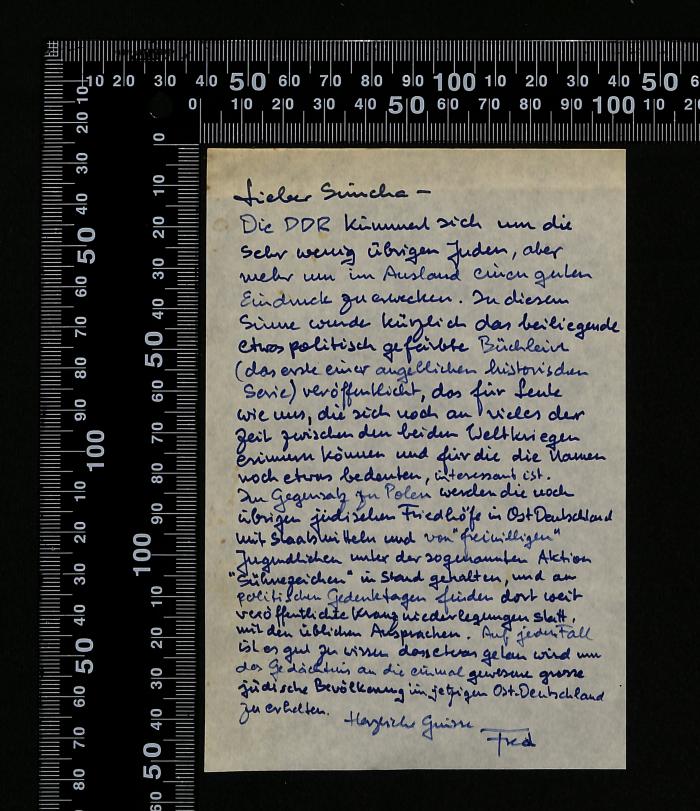 Lieber Simcha —
Die DDR kümmert sich um die
sehr wenig übrigen Juden, aber
mehr um im Ausland einen guten
Eindruck zu erwecken. In diesem
Sinne wurde kürzlich das beiliegende
etwas politisch gefärbte Büchlein
(das erste einer angeblichen historischen
Serie) veröffentlicht, das für Leute
wie uns, die sich noch an vieles der
Zeit zwischen den beiden Weltkriegen
erinnern können und für die die Namen
noch etwas bedeuten, interessant ist.
Im Gegensatz zu Polen werden die noch
übrigen jüdischen Friedhöfe in Ost-Deutschland
mit Staatsmitteln und von "freiwilligen"
Jugendlichen unter der sogenannten Aktion
"Sühnezeichen" in Stand gehalten, und an
politischen Gedenktagen finden dort weit
veröffentlichte Kranzniederlegungen statt,
mit den üblichen Ansprachen. Auf jeden Fall
ist es gut zu wissen dass etwas getan wird um
das Gedächtnis an die einmal gewesene grosse
jüdische Bevölkerung im jetzigen Ost-Deutschland
zu erhalten.
Herzliche Grüsse
Fred
10 20 30 40 50 60 70 80 90 100 10 20 30 40 50 6
0 10 20 30 40 50 60 70 80 90 100 10 2
10 20 30 40 50 60 70 80 90 100 10 20 30 40 50 60 70 80
0 10 20 30 40 50 60 70 80 90 100 10 20 30 40 50 60